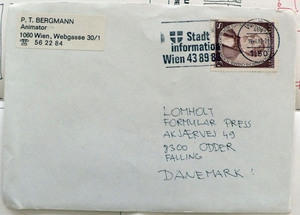 P. T. BERGMANN
Animator
1060 Wien, Webgasse 30/1
☏ 56 22 84
Stadt
information
Wien 43 89 89
1150
LOMHOLT
FORMULAR PRESS
AKSJÆRVEJ 49
8300 ODDER
FALLING
DANEMARK!